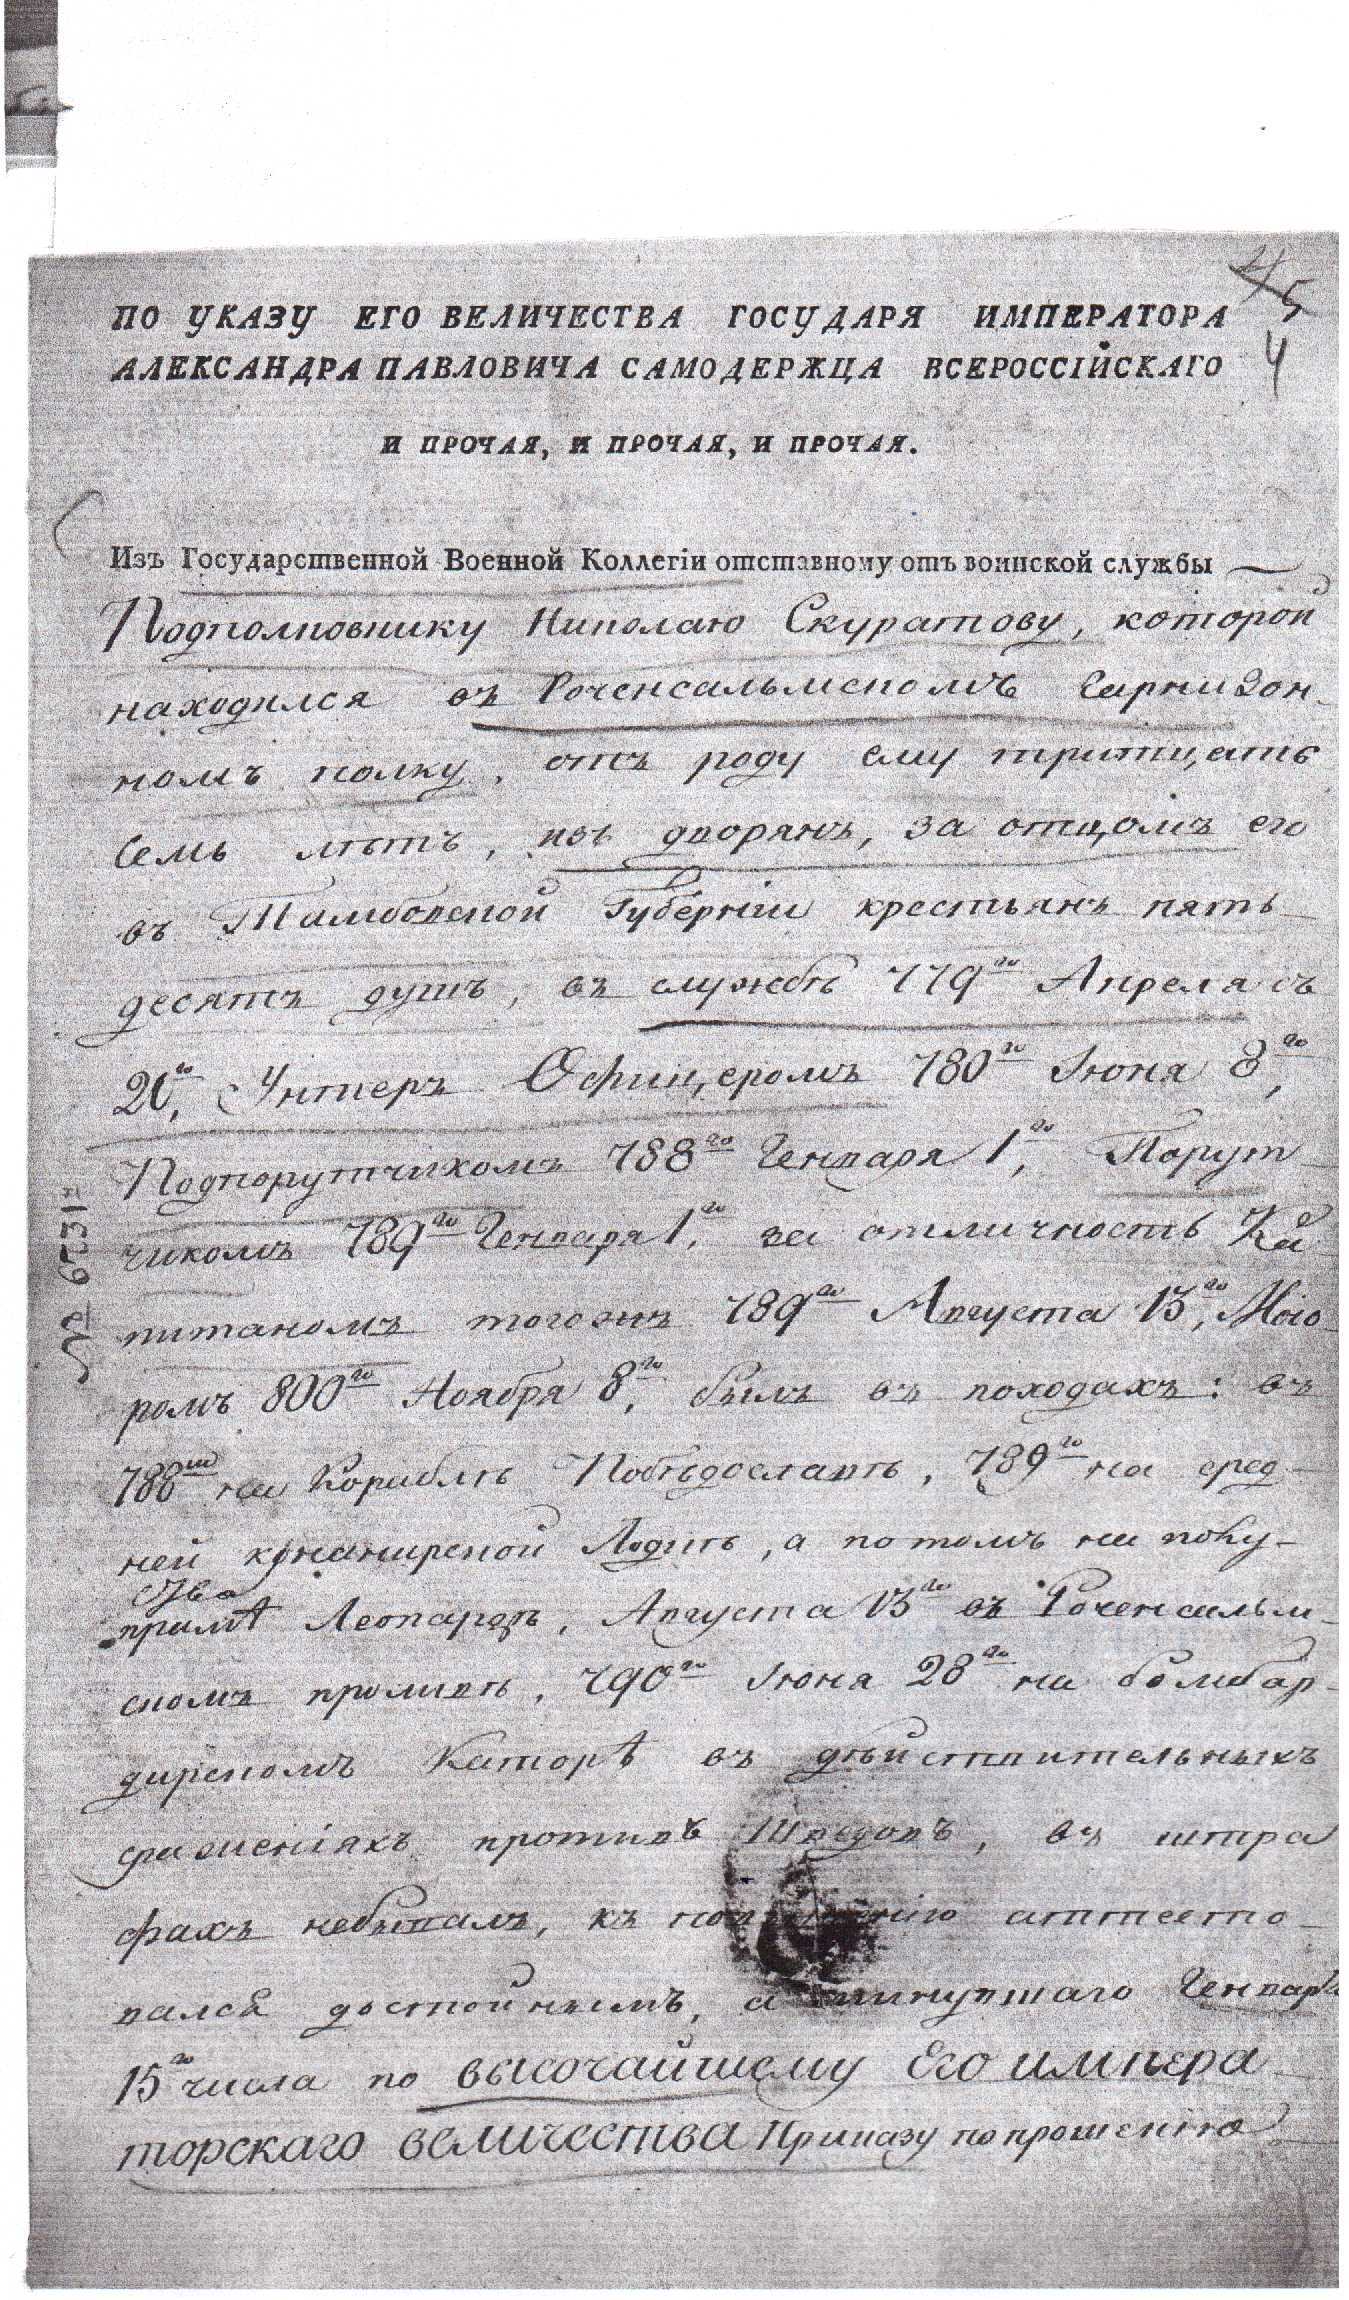 5
4
ПО УКАЗУ ЕГО ВЕЛИЧЕСТВА ГОСУДАРЯ ИМПЕРАТОРА
АЛЕКСАНДРА ПАВЛОВИЧА САМОДЕРЖЦА ВСЕРОССІЙСКАГО
И ПРОЧАЯ, И ПРОЧАЯ, И ПРОЧАЯ.
Изъ Государственной Военной Коллегіи отставному отъ воинской службы
Подполковнику Николаю Скуратову, которой
находился въ Роченсальмскомъ Гарнизон-
номъ полку, отъ роду ему тритцать
семь лѣтъ, изъ дворянъ, за отцомъ его
въ Тамбовской Губерніи крестьянъ пять-
десятъ душъ, въ службѣ 779го Апреля съ
20го, Унтеръ Офицеромъ 780го Іюня 8го,
Подпорутчикомъ 788го Генваря 1го, Порут-
чикомъ 789го Генваря 1го, за отличность Ка-
питаномъ тогожъ 789го Августа 13го, Маіо-
ромъ 800го Ноября 8го, былъ въ походахъ: въ
788мъ на Кораблѣ Побѣдославѣ, 789го на сред-
ней канонирской Лодкѣ, а потомъ на
Леопардъ, Августа 13го въ Роченсальм-
скомъ проливѣ, 790го Іюня 28го на бомбар-
дирскомъ Катерѣ въ дѣйствительныхъ
сраженіяхъ противъ Шведовъ, въ штра
фахъ небывалъ, къ аттесто-
вался достойнымъ, а минувшаго Генваря
15го числа по высочайшему Его импера-
торскаго величества Приказу по прошенію
№ 6231